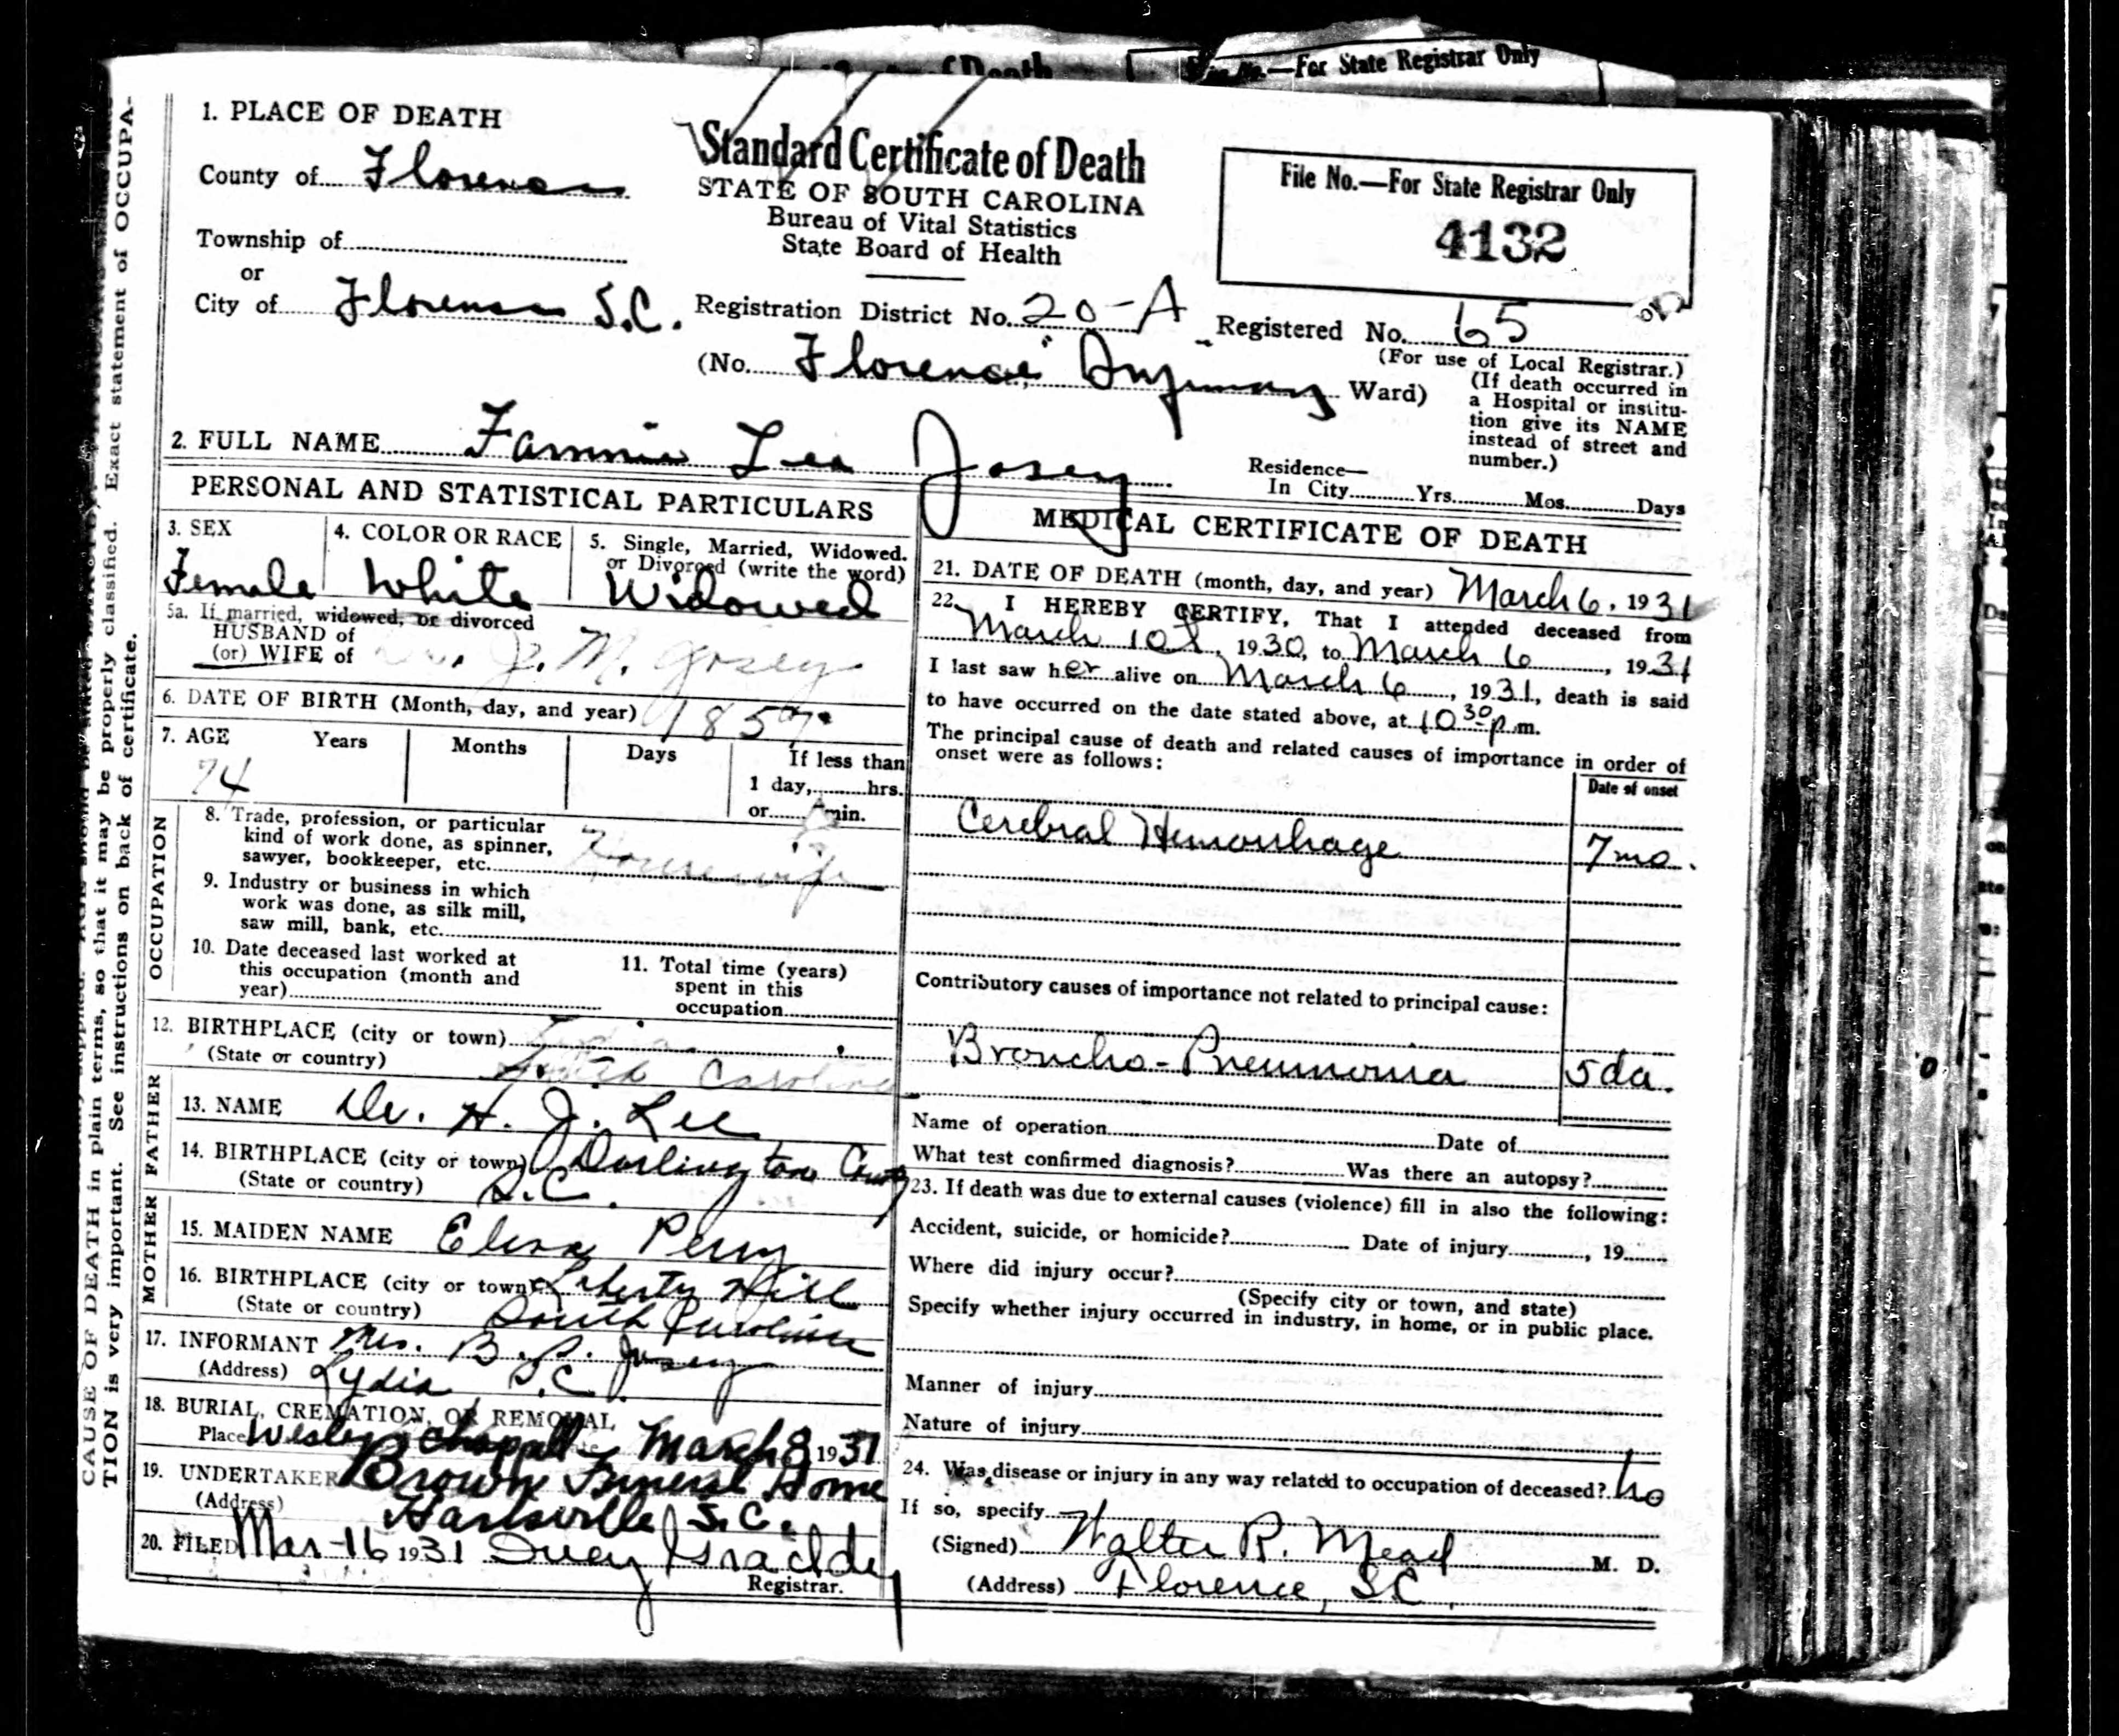 File No.—For State Registrar Only
1. PLACE OF DEATH
County of Florence
Township of
or
City of Florence S.C.
Standard Certificate of Death
STATE OF SOUTH CAROLINA
Bureau of Vital Statistics
State Board of Health
File No.—For State Registrar Only
4132
Registration District No. 20-A Registered No. 65
(For use of Local Registrar.)
(No. Florence Ward)
(If death occurred in
a Hospital or institu-
tion give its NAME
instead of street and
number.)
2. FULL NAME Fannie Lee Josey
Residence—
In City Yrs. Mos. Days
PERSONAL AND STATISTICAL PARTICULARS
3. SEX
Female
4. COLOR OR RACE
White
5. Single, Married, Widowed.
or Divorced (write the word)
Widowed
5a. If married, widowed, or divorced
HUSBAND of
(or) WIFE of J. M. Josey
6. DATE OF BIRTH (Month, day, and year) 1857
7. AGE Years Months Days If less than
74
1 day, hrs.
or min.
OCCUPATION
8. Trade, profession, or particular
kind of work done, as spinner,
sawyer, bookkeeper, etc. Housewife
9. Industry or business in which
work was done, as silk mill,
saw mill, bank, etc.
10. Date deceased last worked at
this occupation (month and
year)
11. Total time (years)
spent in this
occupation
12. BIRTHPLACE (city or town)
(State or country) South Carolina
FATHER
13. NAME Dr. H. J. Lee
14. BIRTHPLACE (city or town) Darlington County
(State or country) S.C.
MOTHER
15. MAIDEN NAME Eliza Perry
16. BIRTHPLACE (city or town) Liberty Hill
(State or country) South Carolina
17. INFORMANT Mrs. B. P. Josey
(Address) Lydia S.C.
18. BURIAL, CREMATION, OR REMOVAL
Place Wesley Chapell March 8 1931
19. UNDERTAKER Brown Funeral Home
(Address) Hartsville S.C.
20. FILED Mar-16 1931
Registrar.
MEDICAL CERTIFICATE OF DEATH
21. DATE OF DEATH (month, day, and year) March 6, 1931
22. I HEREBY CERTIFY, That I attended deceased from
March 1930, to March 6, 1931
I last saw her alive on March 6, 1931, death is said
to have occurred on the date stated above, at 10 30 p.m.
The principal cause of death and related causes of importance in order of
onset were as follows:
Date of onset
Cerebral Hemorrhage 7 mo.
Contributory causes of importance not related to principal cause:
Broncho-Pneumonia 5 da.
Name of operation Date of
What test confirmed diagnosis? Was there an autopsy?
23. If death was due to external causes (violence) fill in also the following:
Accident, suicide, or homicide? Date of injury , 19
Where did injury occur?
(Specify city or town, and state)
Specify whether injury occurred in industry, in home, or in public place.
Manner of injury
Nature of injury
24. Was disease or injury in any way related to occupation of deceased? no
If so, specify
(Signed) Walter R. Mead M. D.
(Address) Florence, S.C.
CAUSE OF DEATH in plain terms, so that it may be properly classified. Exact statement of OCCUPA-
TION is very important. See instructions on back of certificate.